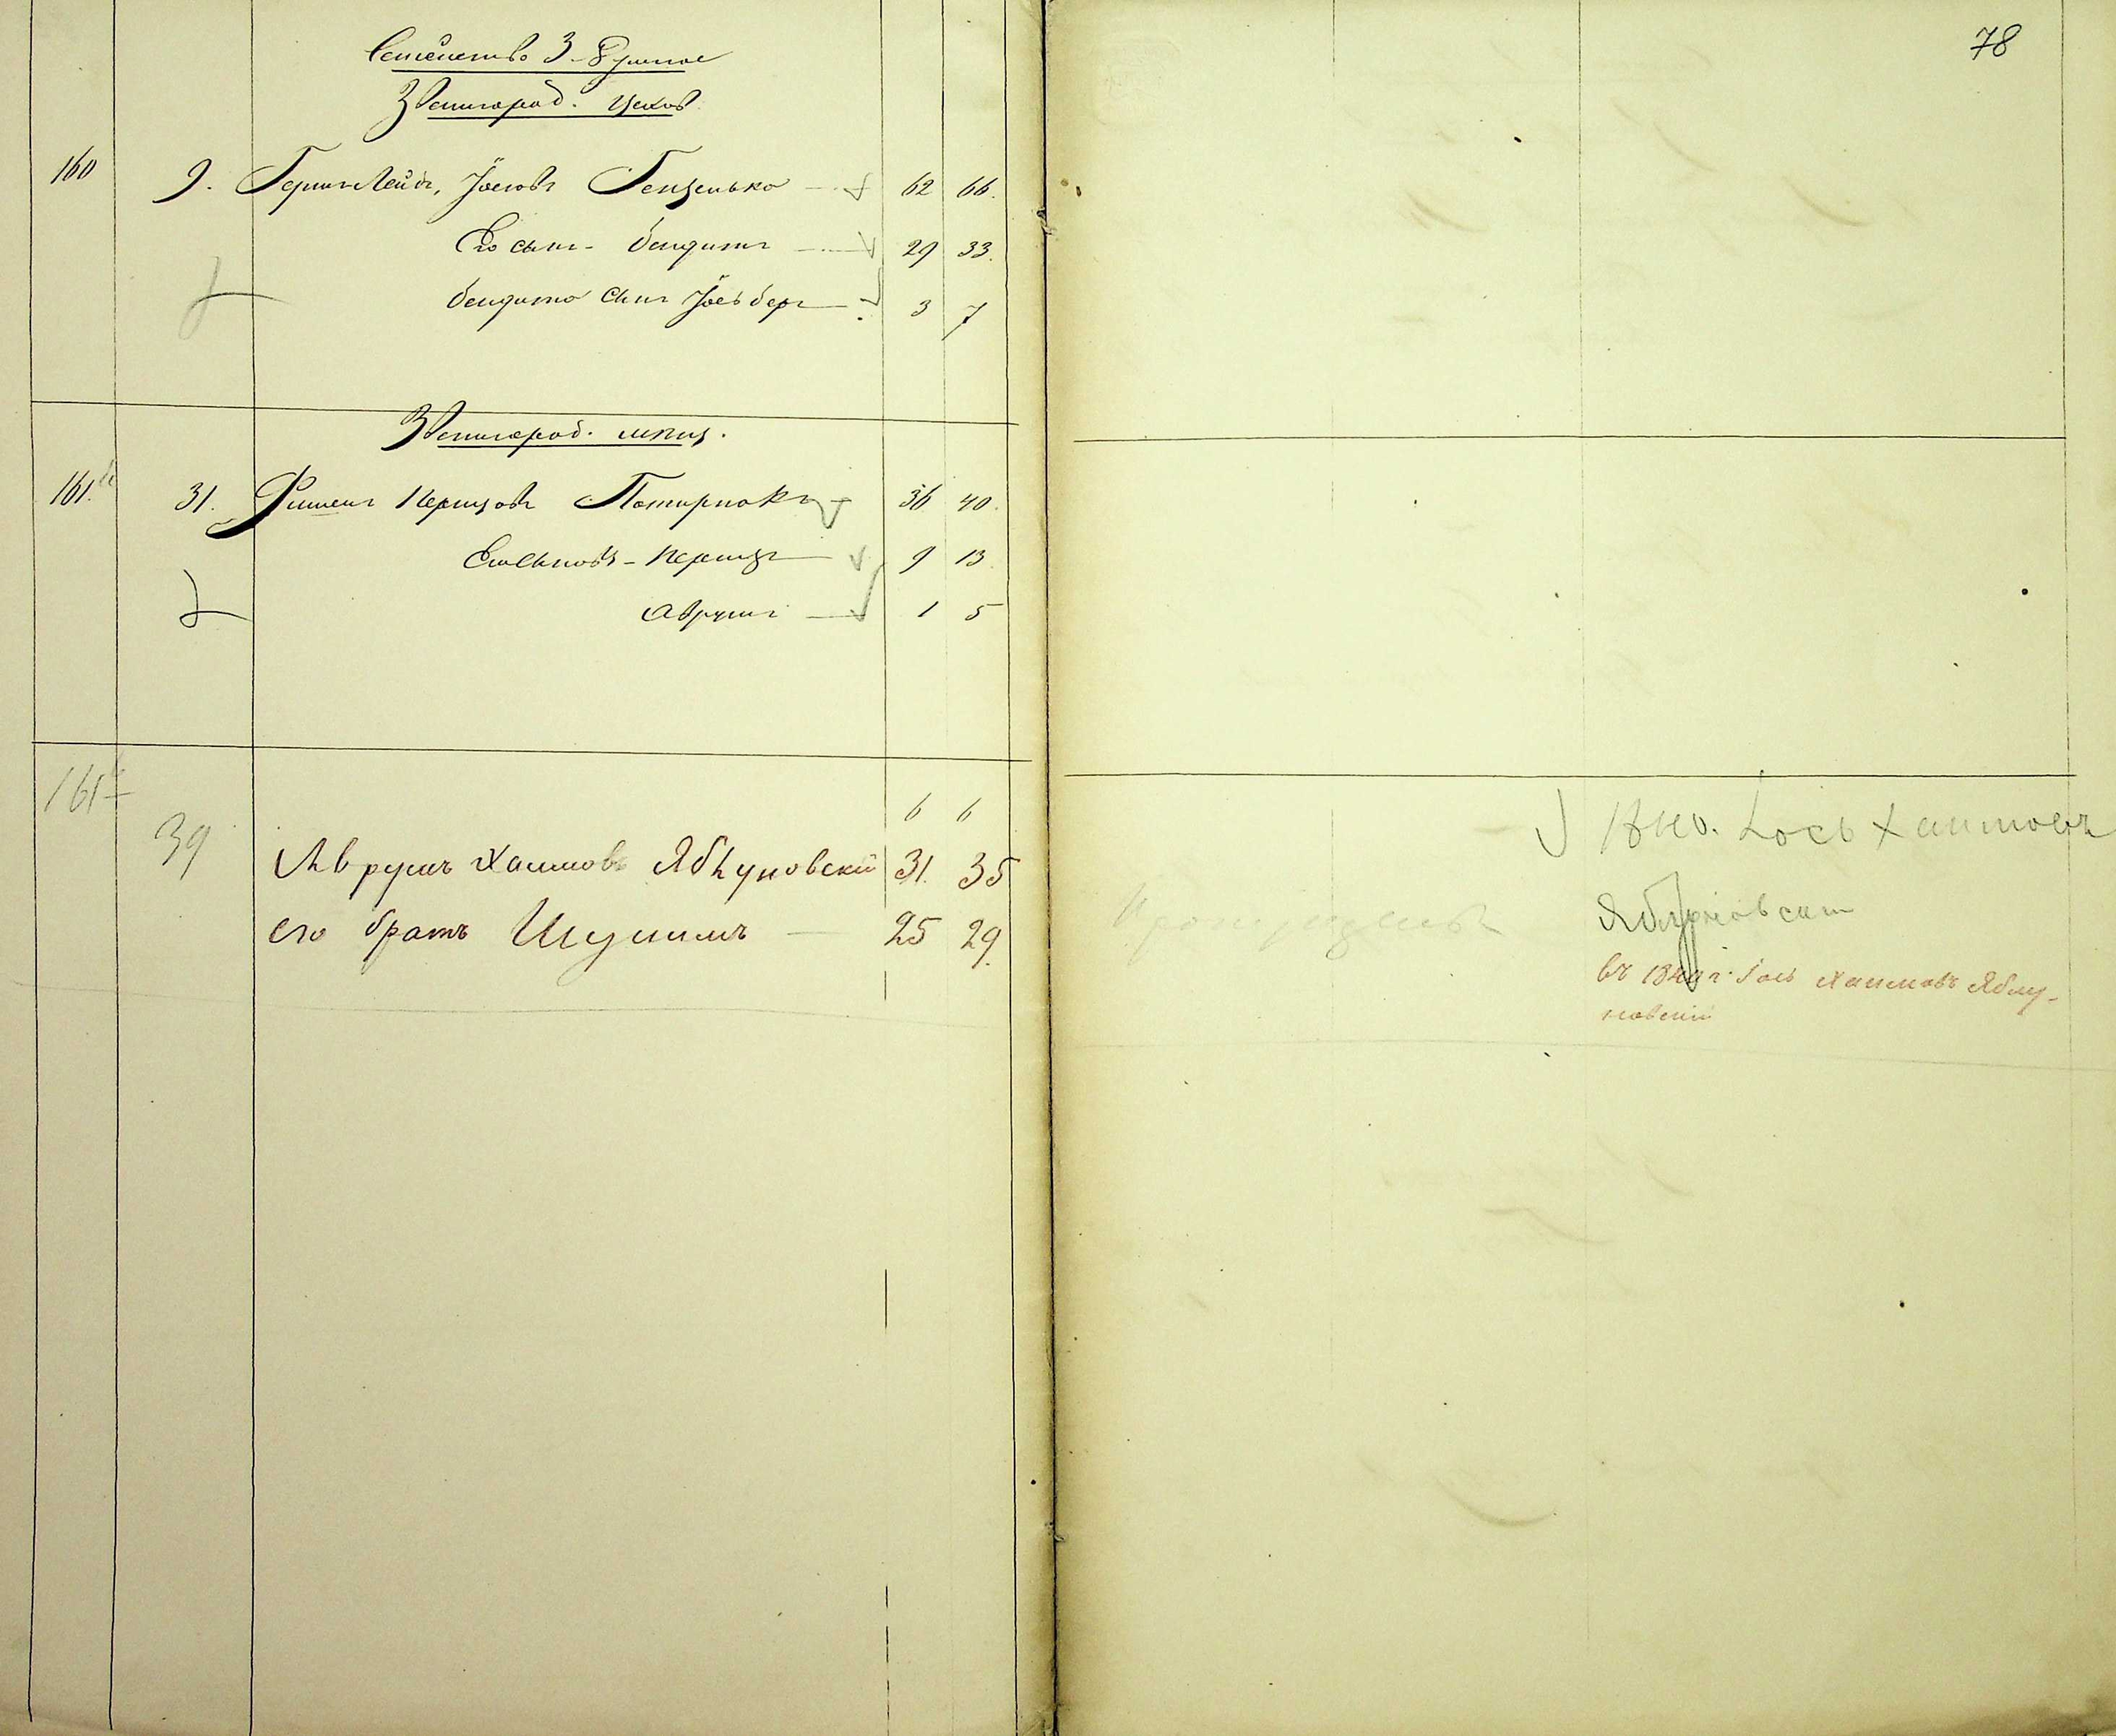 Семейство 3-8 душное
Звенигород. цехов.
160 9. Герш Лейб, Іосіовъ Геценько 62 66.
Его сынъ - бендитъ 29 33.
бендита сынъ Іось берг 3 7
Звенигород. мѣщ.
161. 31. Фишель Перецовъ Потирнокъ 36 40.
Его сыновъ - Перецъ 9 13
Аврумъ 1 5
161
6 6
39 Аврумъ Хаимовъ Яблуновскій 31. 35
его братъ Шулимъ 25 29.
78
1840. Іось Хаимовъ
Яблуновскій
въ 1840 г. Іось Хаимовъ Яблу-
новскій